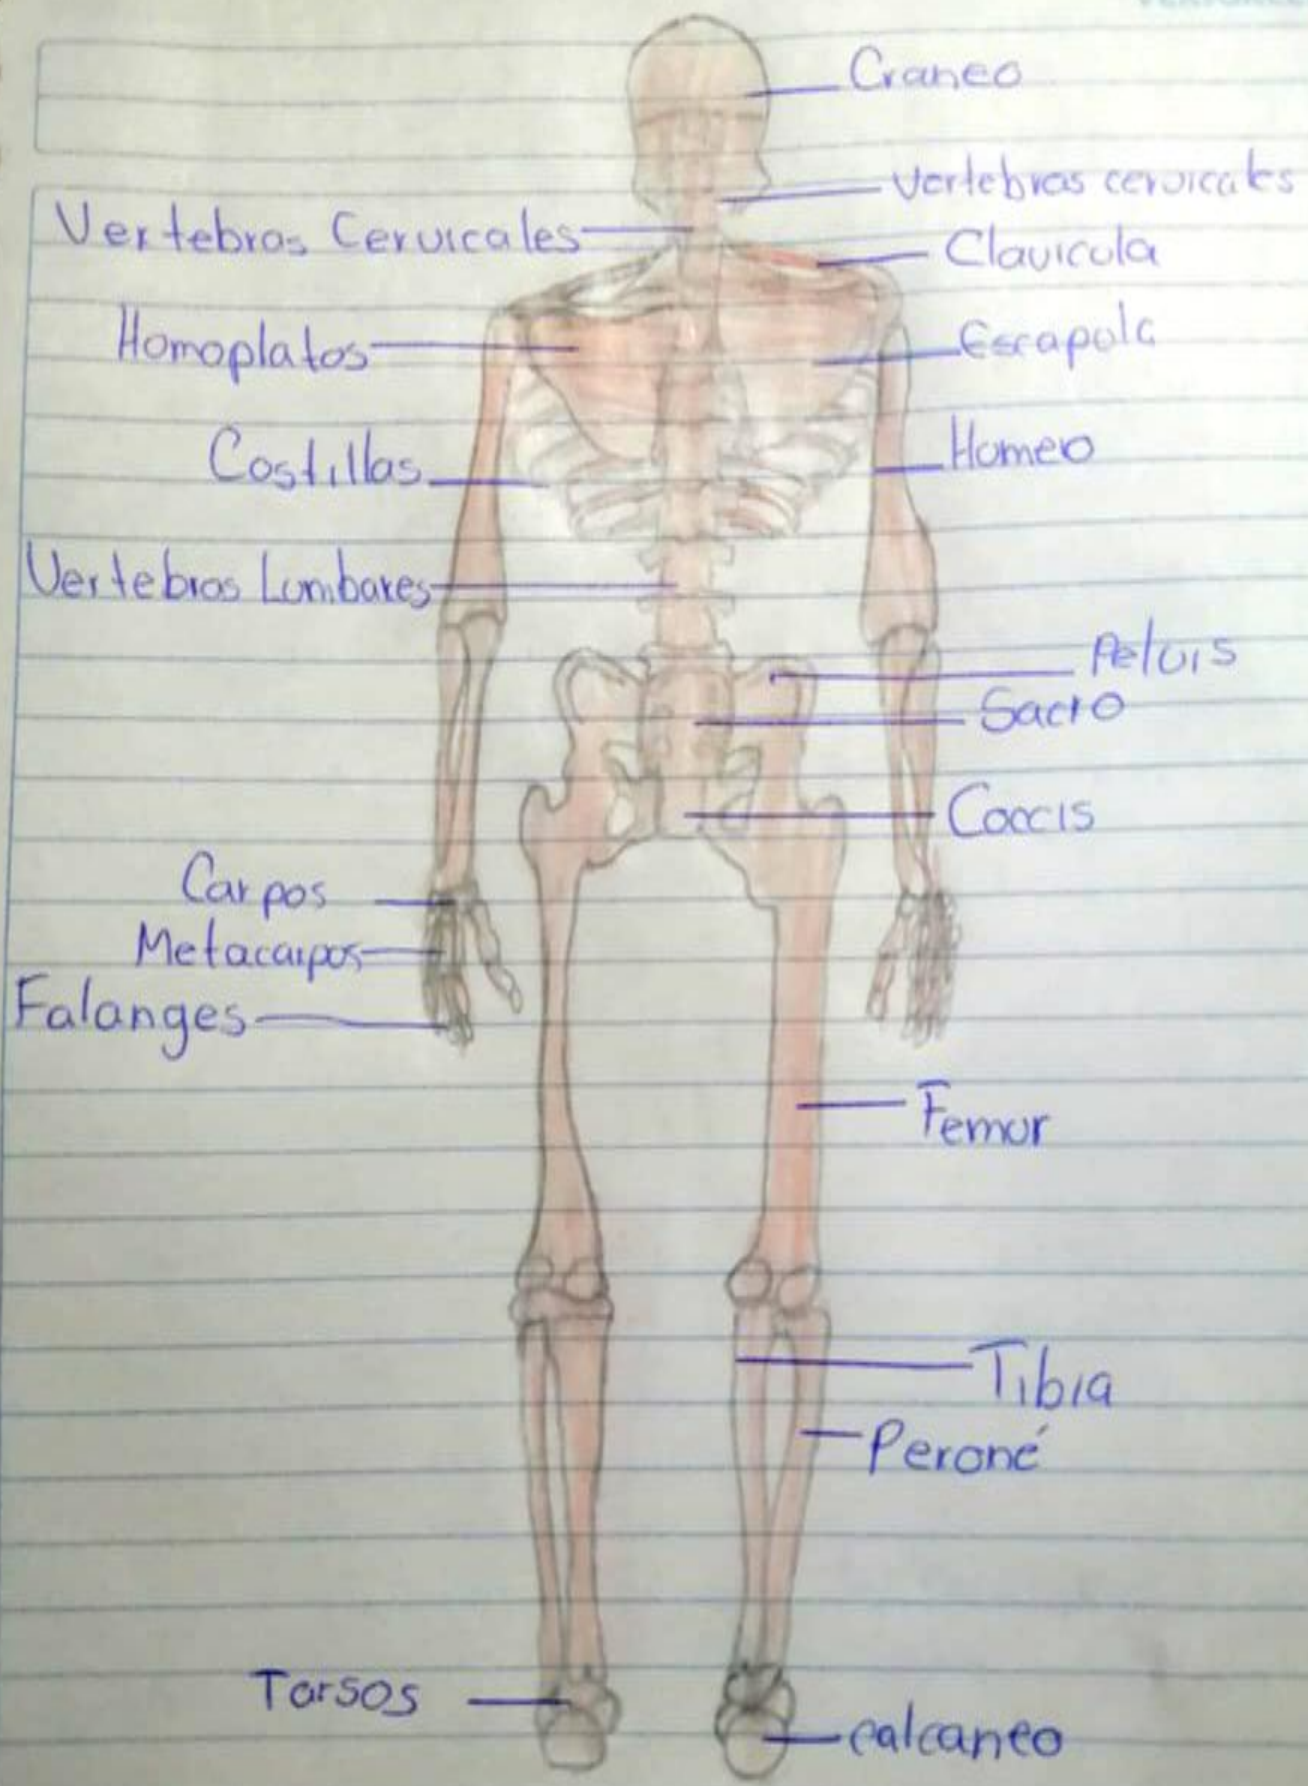 Craneo
Vertebras cervicales
Vertebras Cervicales
Clavicula
Homoplatos
Escapula
Costillas
Humero
Vertebras Lumbares
Pelvis
Sacro
Coccis
Carpos
Metacarpos
Falanges
Femur
Tibia
Peroné
Tarsos
calcaneo